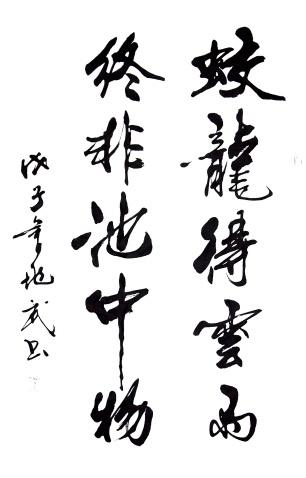 蛟龍得雲雨
終非池中物
戊子年